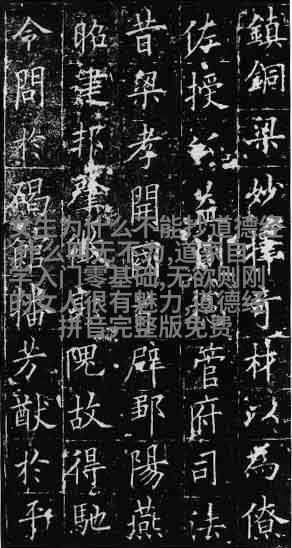 鎮銅梁妙擇奇材以為僚
佐授公益管府司法
昔梁孝開國首辟鄒陽燕
昭建邦肇隗故得馳
令問於碣館播芳猷於平
生为什么不能抄道德经
什么无不为,道家国
学入门零基础,无欲则刚
的女人很有魅力,道德经
拼音完整版免费